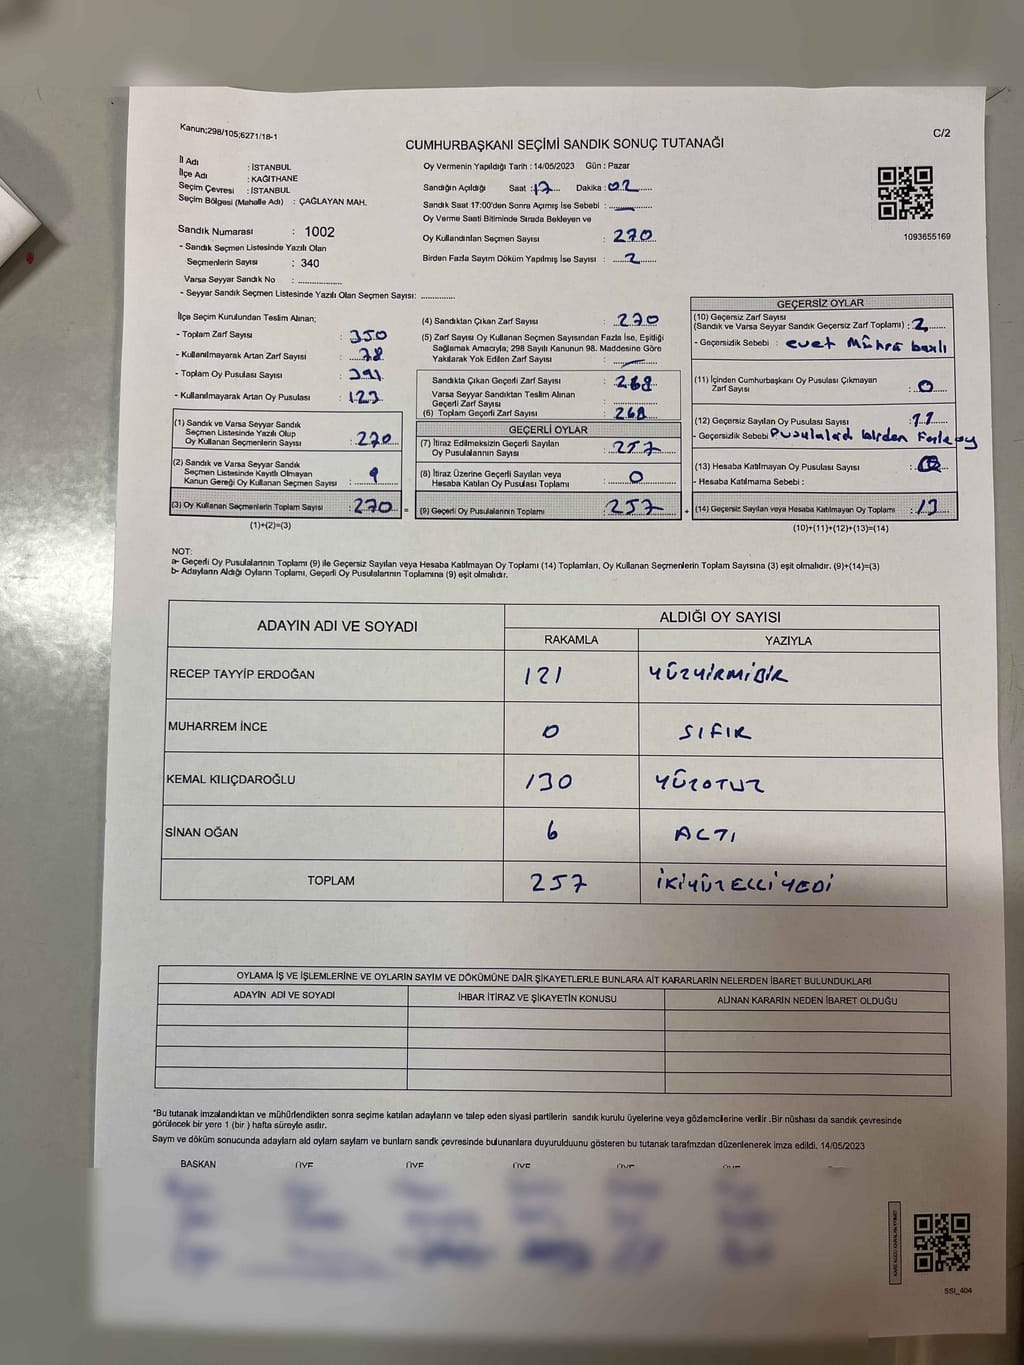 Kanun;298/105;6271/18-1
C/2
CUMHURBAŞKANI SEÇİMİ SANDIK SONUÇ TUTANAĞI
İl Adı : İSTANBUL
İlçe Adı : KAĞITHANE
Seçim Çevresi : İSTANBUL
Seçim Bölgesi (Mahalle Adı) : ÇAĞLAYAN MAH.
Sandık Numarası : 1002
- Sandık Seçmen Listesinde Yazılı Olan
Seçmenlerin Sayısı : 340
Varsa Seyyar Sandık No : ..................
- Seyyar Sandık Seçmen Listesinde Yazılı Olan Seçmen Sayısı: ..............
Oy Vermenin Yapıldığı Tarih : 14/05/2023 Gün : Pazar
Sandığın Açıldığı Saat : 17 Dakika : 02
Sandık Saat 17:00'den Sonra Açımış İse Sebebi :
Oy Verme Saati Bitiminde Sırada Bekleyen ve
Oy Kullandırılan Seçmen Sayısı : 270
Birden Fazla Sayım Döküm Yapılmış İse Sayısı : 2
1093655169
İlçe Seçim Kurulundan Teslim Alınan;
- Toplam Zarf Sayısı : 350
- Kullanılmayarak Artan Zarf Sayısı : 78
- Toplam Oy Pusulası Sayısı : 391
- Kullanılmayarak Artan Oy Pusulası : 123
(1) Sandık ve Varsa Seyyar Sandık
Seçmen Listesinde Yazılı Olup
Oy Kullanan Seçmenlerin Sayısı : 270
(2) Sandık ve Varsa Seyyar Sandık
Seçmen Listesinde Kayıtlı Olmayan
Kanun Gereği Oy Kullanan Seçmen Sayısı :
(3) Oy Kullanan Seçmenlerin Toplam Sayısı : 270 =
(1)+(2)=(3)
(4) Sandıktan Çıkan Zarf Sayısı : 270
(5) Zarf Sayısı Oy Kullanan Seçmen Sayısından Fazla İse, Eşitliği
Sağlamak Amacıyla; 298 Sayılı Kanunun 98. Maddesine Göre
Yakılarak Yok Edilen Zarf Sayısı :
Sandıkta Çıkan Geçerli Zarf Sayısı : 268
Varsa Seyyar Sandıktan Teslim Alınan
Geçerli Zarf Sayısı : ..................
(6) Toplam Geçerli Zarf Sayısı : 268
GEÇERLİ OYLAR
(7) İtiraz Edilmeksizin Geçerli Sayılan
Oy Pusulalarının Sayısı : 257
(8) İtiraz Üzerine Geçerli Sayılan veya
Hesaba Katılan Oy Pusulası Toplamı : 0
(9) Geçerli Oy Pusulalarının Toplamı : 257 +
GEÇERSİZ OYLAR
(10) Geçersiz Zarf Sayısı
(Sandık ve Varsa Seyyar Sandık Geçersiz Zarf Toplamı) : 2
- Geçersizlik Sebebi : evet Mührü basılı
(11) İçinden Cumhurbaşkanı Oy Pusulası Çıkmayan
Zarf Sayısı : 0
(12) Geçersiz Sayılan Oy Pusulası Sayısı : 11
- Geçersizlik Sebebi birden Fazla oy
(13) Hesaba Katılmayan Oy Pusulası Sayısı :
- Hesaba Katılmama Sebebi :
(14) Geçersiz Sayılan veya Hesaba Katılmayan Oy Toplamı : 13
(10)+(11)+(12)+(13)=(14)
NOT:
a- Geçerli Oy Pusulalarının Toplamı (9) ile Geçersiz Sayılan veya Hesaba Katılmayan Oy Toplamı (14) Toplamları, Oy Kullanan Seçmenlerin Toplam Sayısına (3) eşit olmalıdır. (9)+(14)=(3)
b- Adayların Aldığı Oyların Toplamı, Geçerli Oy Pusulalarının Toplamına (9) eşit olmalıdır.
ADAYIN ADI VE SOYADI
ALDIĞI OY SAYISI
RAKAMLA YAZIYLA
RECEP TAYYİP ERDOĞAN 121 YÜZYİRMİBİR
MUHARREM İNCE 0 SIFIR
KEMAL KILIÇDAROĞLU 130 YÜZOTUZ
SİNAN OĞAN 6 ALTI
TOPLAM 257 İKİYÜZELLİYEDİ
OYLAMA İŞ VE İŞLEMLERİNE VE OYLARIN SAYIM VE DÖKÜMÜNE DAİR ŞİKAYETLERLE BUNLARA AİT KARARLARIN NELERDEN İBARET BULUNDUKLARI
ADAYIN ADI VE SOYADI İHBAR İTİRAZ VE ŞİKAYETİN KONUSU ALINAN KARARIN NEDEN İBARET OLDUĞU
*Bu tutanak imzalandıktan ve mühürlendikten sonra seçime katılan adayların ve talep eden siyasi partilerin sandık kurulu üyelerine veya gözlemcilerine verilir .Bir nüshası da sandık çevresinde
görülecek bir yere 1 (bir ) hafta süreyle asılır.
Sayım ve döküm sonucunda adayların ald oyların sayların ve bunların sandık çevresinde bulunanlara duyurulduunu gösteren bu tutanak tarafmzdan düzenlenerek imza edildi. 14/05/2023
BAŞKAN ÜYE ÜYE ÜYE ÜYE ÜYE
SSI_404